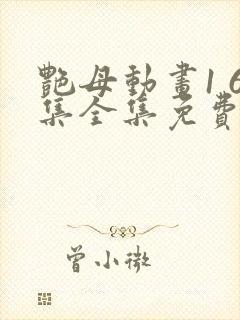 艷母動畫16
集全集免費
曾小微